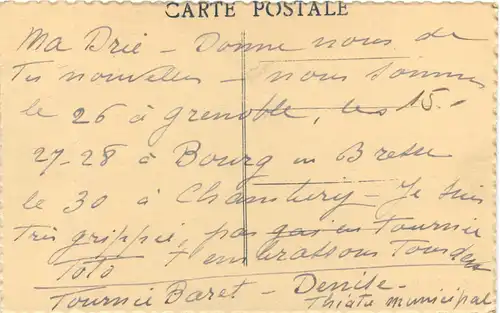 CARTE POSTALE
Ma Drie - Donne nous de
Tes nouvelles - nous sommes
le 26 à Grenoble, les 15.
27-28 à Bourg en Bresse
le 30 à Chambéry - Je suis
Très grippé, pas gas en Tournée
Toto + embrassons Tous deux
Tournée Baret - Denise -
Théâtre municipal